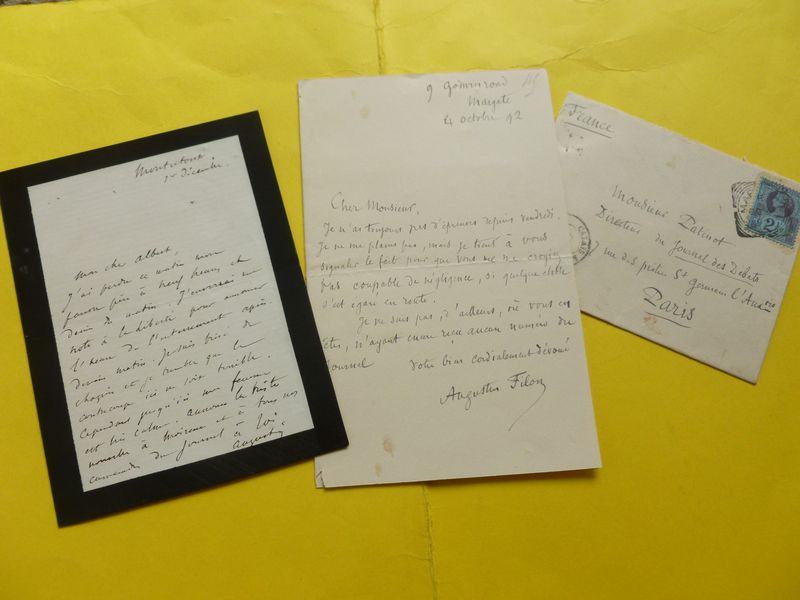 Montretout
1er Décembre.
Mon cher Albert,
J'ai perdu ce matin mon
pauvre père à neuf heures et
demie du matin. J'enverrai une
note à la liberté pour annoncer
l'heure de l'enterrement après
demain matin. Je suis brisé de
chagrin et je tremble que le
contrecoup ici ne soit terrible.
Cependant jusqu'ici ma femme
est très calme. Annonce la triste
nouvelle à et à tous nos
camarades du Journal à toi
Augustin
9 Godwin road
Margate
4 octobre 92
Cher Monsieur,
Je n'ai toujours pas d'épreuves depuis vendredi.
Je ne me plains pas, mais je tiens à vous
signaler le fait pour que vous ne me croyiez
pas coupable de négligence, si quelque chose
s'est égaré en route.
Je ne sais pas, d'ailleurs, où vous en
êtes, n'ayant encore reçu aucun numéro du
Journal Votre bien cordialement dévoué
Augustin Filon
France
Monsieur Patinot
Directeur du Journal des Débats
rue des prêtres St Germain l'Auxerrois
Paris
CALAIS
2½